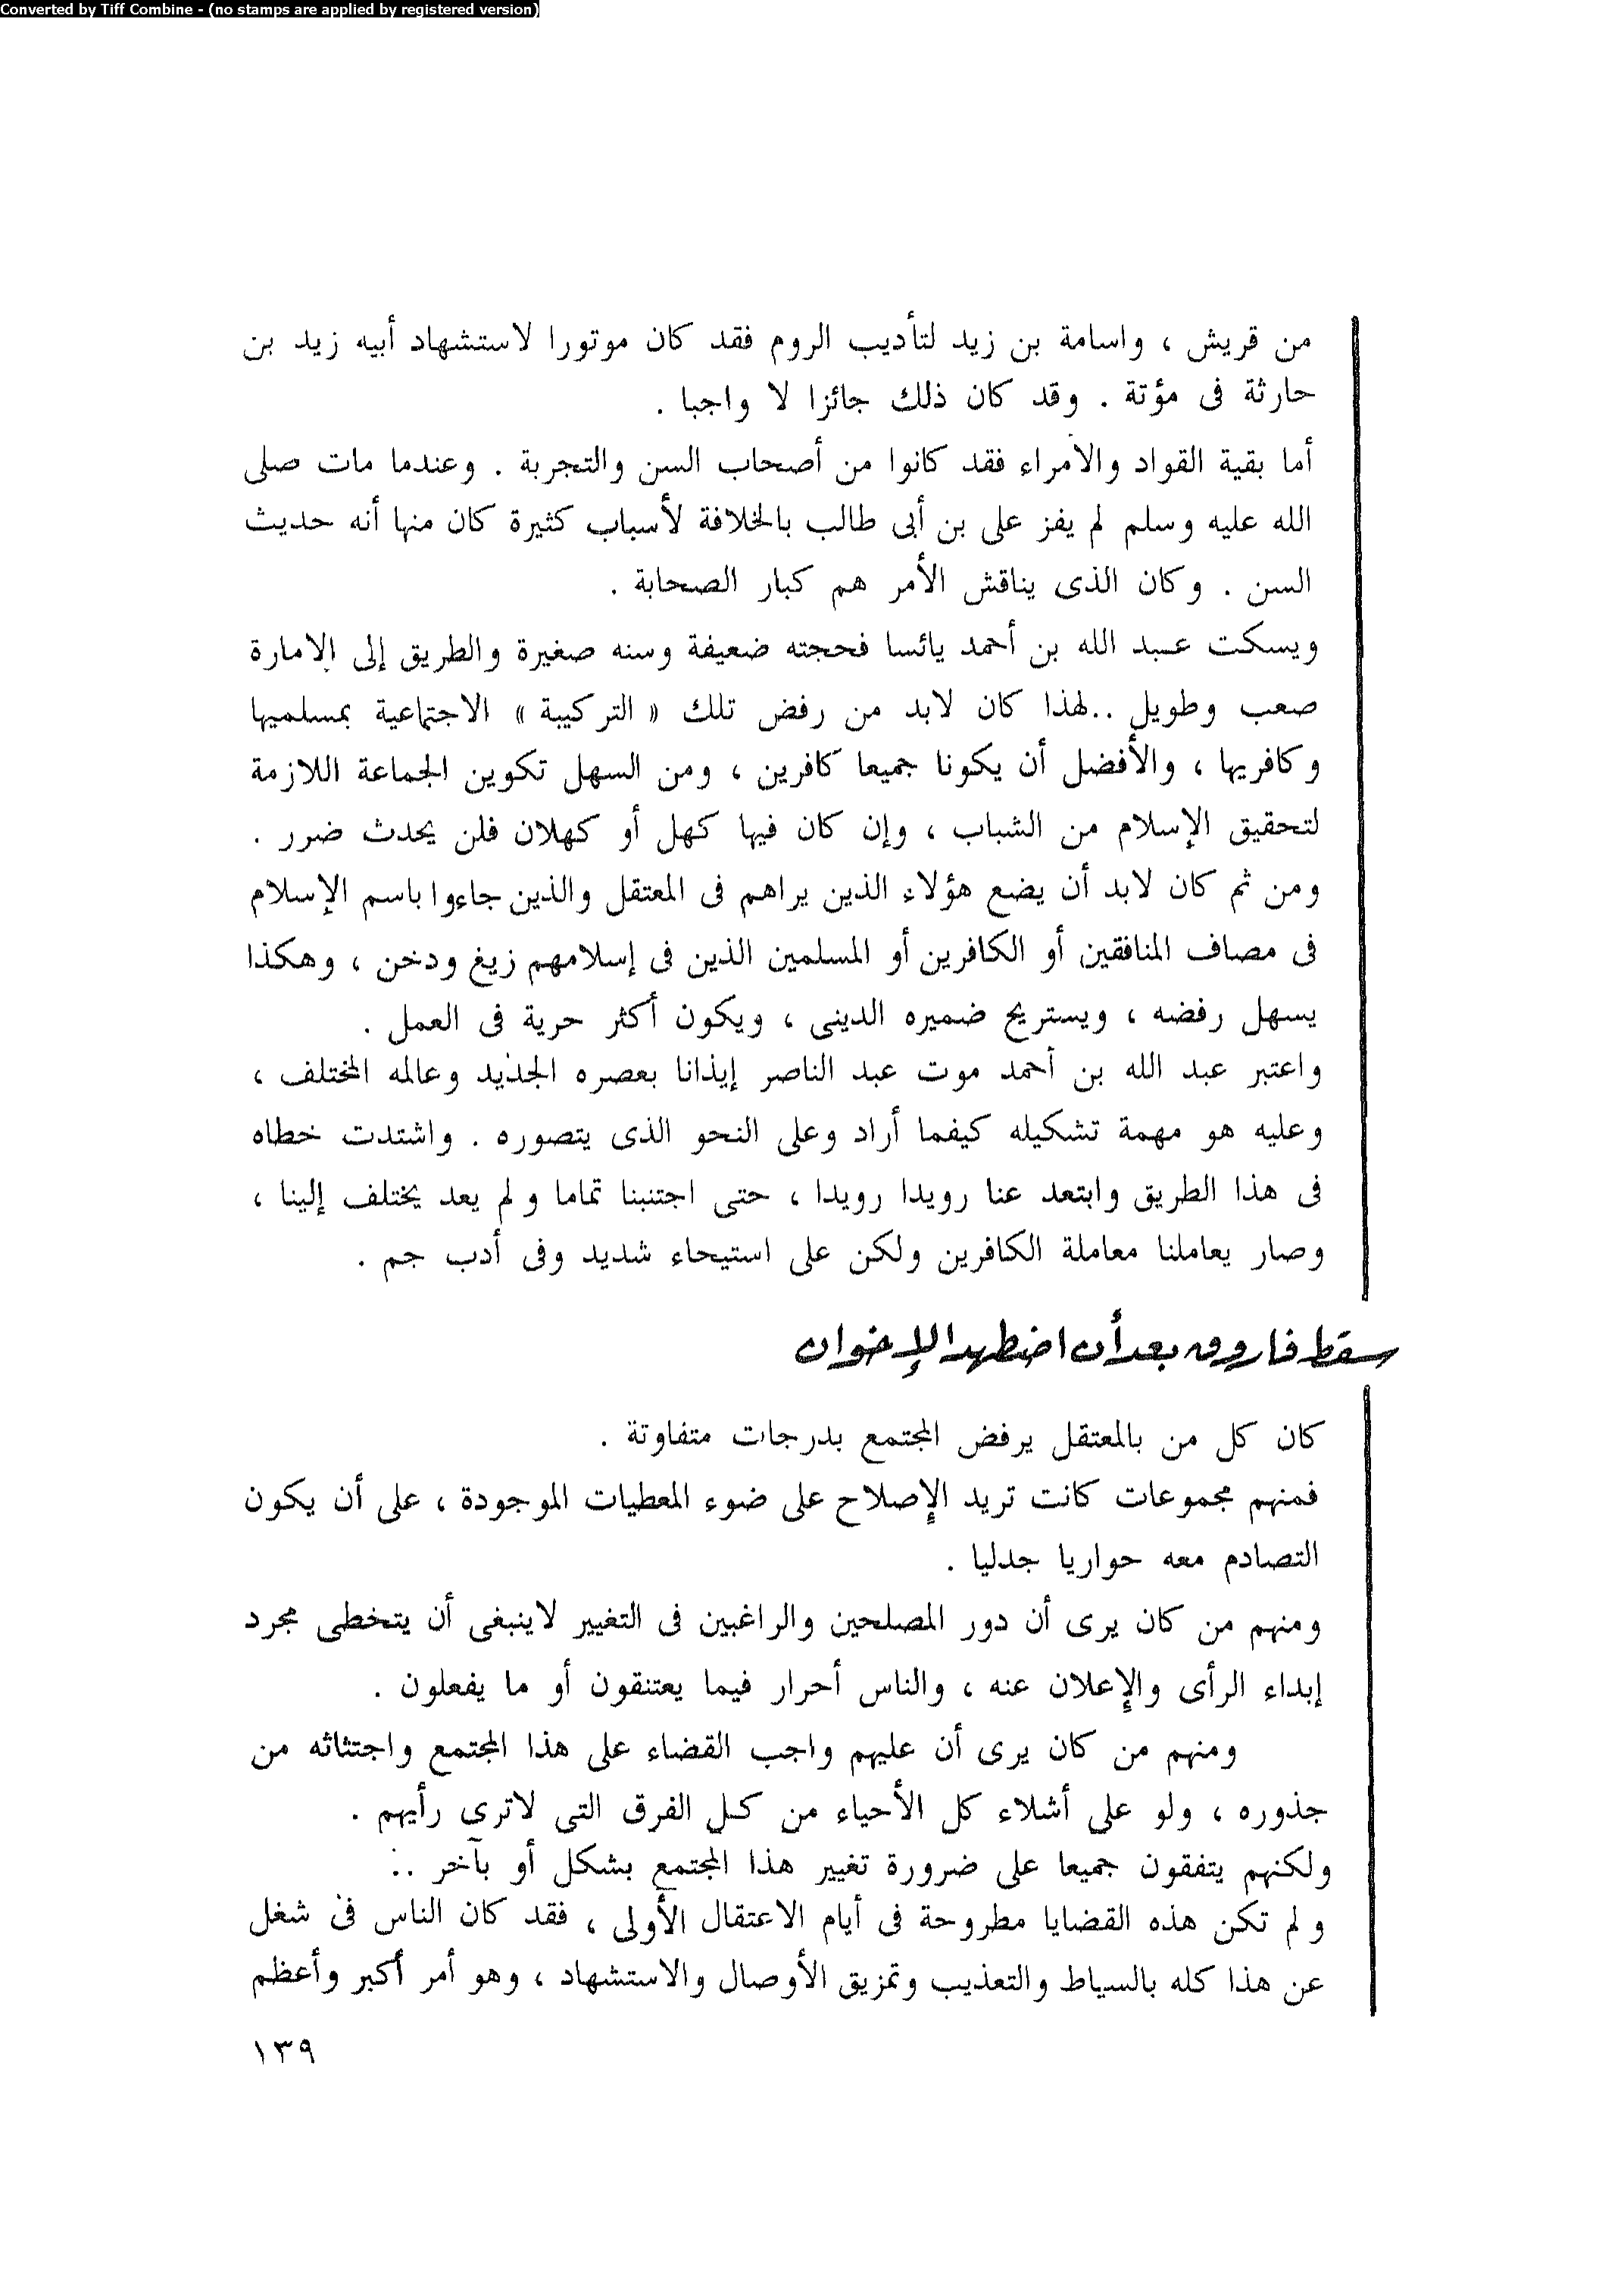 Converted by Tiff Combine - (no stamps are applied by registered version)
من قريش ، واسامة بن زيد لتأديب الروم فقد كان موتورا لاستشهاد أبيه زيد بن
حارثة فى مؤتة . وقد كان ذلك جائزا لا واجبا .
أما بقية القواد والأمراء فقد كانوا من أصحاب السن والتجربة . وعندما مات صلى
الله عليه وسلم لم يفز على بن أبى طالب بالخلافة لأسباب كثيرة كان منها أنه حديث
السن . وكان الذى يناقش الأمر هم كبار الصحابة .
ويسكت عبد الله بن أحمد يائسا فحجته ضعيفة وسنه صغيرة والطريق إلى الإمارة
صعب وطويل ..لهذا كان لابد من رفض تلك « التركيبة » الاجتماعية بمسلميها
وكافريها ، والأفضل أن يكونا جميعا كافرين ، ومن السهل تكوين الجماعة اللازمة
لتحقيق الإسلام من الشباب ، وإن كان فيها كهل أو كهلان فلن يحدث ضرر .
ومن ثم كان لابد أن يضع هؤلاء الذين يراهم فى المعتقل والذين جاءوا باسم الإسلام
فى مصاف المنافقين أو الكافرين أو المسلمين الذين فى إسلامهم زيغ ودخن ، وهكذا
يسهل رفضه ، ويستريح ضميره الدينى ، ويكون أكثر حرية فى العمل .
واعتبر عبد الله بن أحمد موت عبد الناصر إيذانا بعصره الجديد وعالمه المختلف ،
وعليه هو مهمة تشكيله كيفما أراد وعلى النحو الذى يتصوره . واشتدت خطاه
فى هذا الطريق وابتعد عنا رويدا رويدا ، حتى اجتنبنا تماما ولم يعد يختلف إلينا ،
وصار يعاملنا معاملة الكافرين ولكن على استيحاء شديد وفى أدب جم .
سقط فاروق بعد أن اضطهد الإخوان
كان كل من بالمعتقل يرفض المجتمع بدرجات متفاوتة .
فمنهم مجموعات كانت تريد الإصلاح على ضوء المعطيات الموجودة ، على أن يكون
التصادم معه حواريا جدليا .
ومنهم من كان يرى أن دور المصلحين والراغبين فى التغيير لاينبغى أن يتخطى مجرد
إبداء الرأى والإعلان عنه ، والناس أحرار فيما يعتنقون أو ما يفعلون .
ومنهم من كان يرى أن عليهم واجب القضاء على هذا المجتمع واجتثاثه من
جذوره ، ولو على أشلاء كل الأحياء من كل الفرق التى لاترى رأيهم .
ولكنهم يتفقون جميعا على ضرورة تغيير هذا المجتمع بشكل أو بآخر ..
ولم تكن هذه القضايا مطروحة فى أيام الاعتقال الأولى ، فقد كان الناس فى شغل
عن هذا كله بالسياط والتعذيب وتمزيق الأوصال والاستشهاد ، وهو أمر أكبر وأعظم
١٣٩